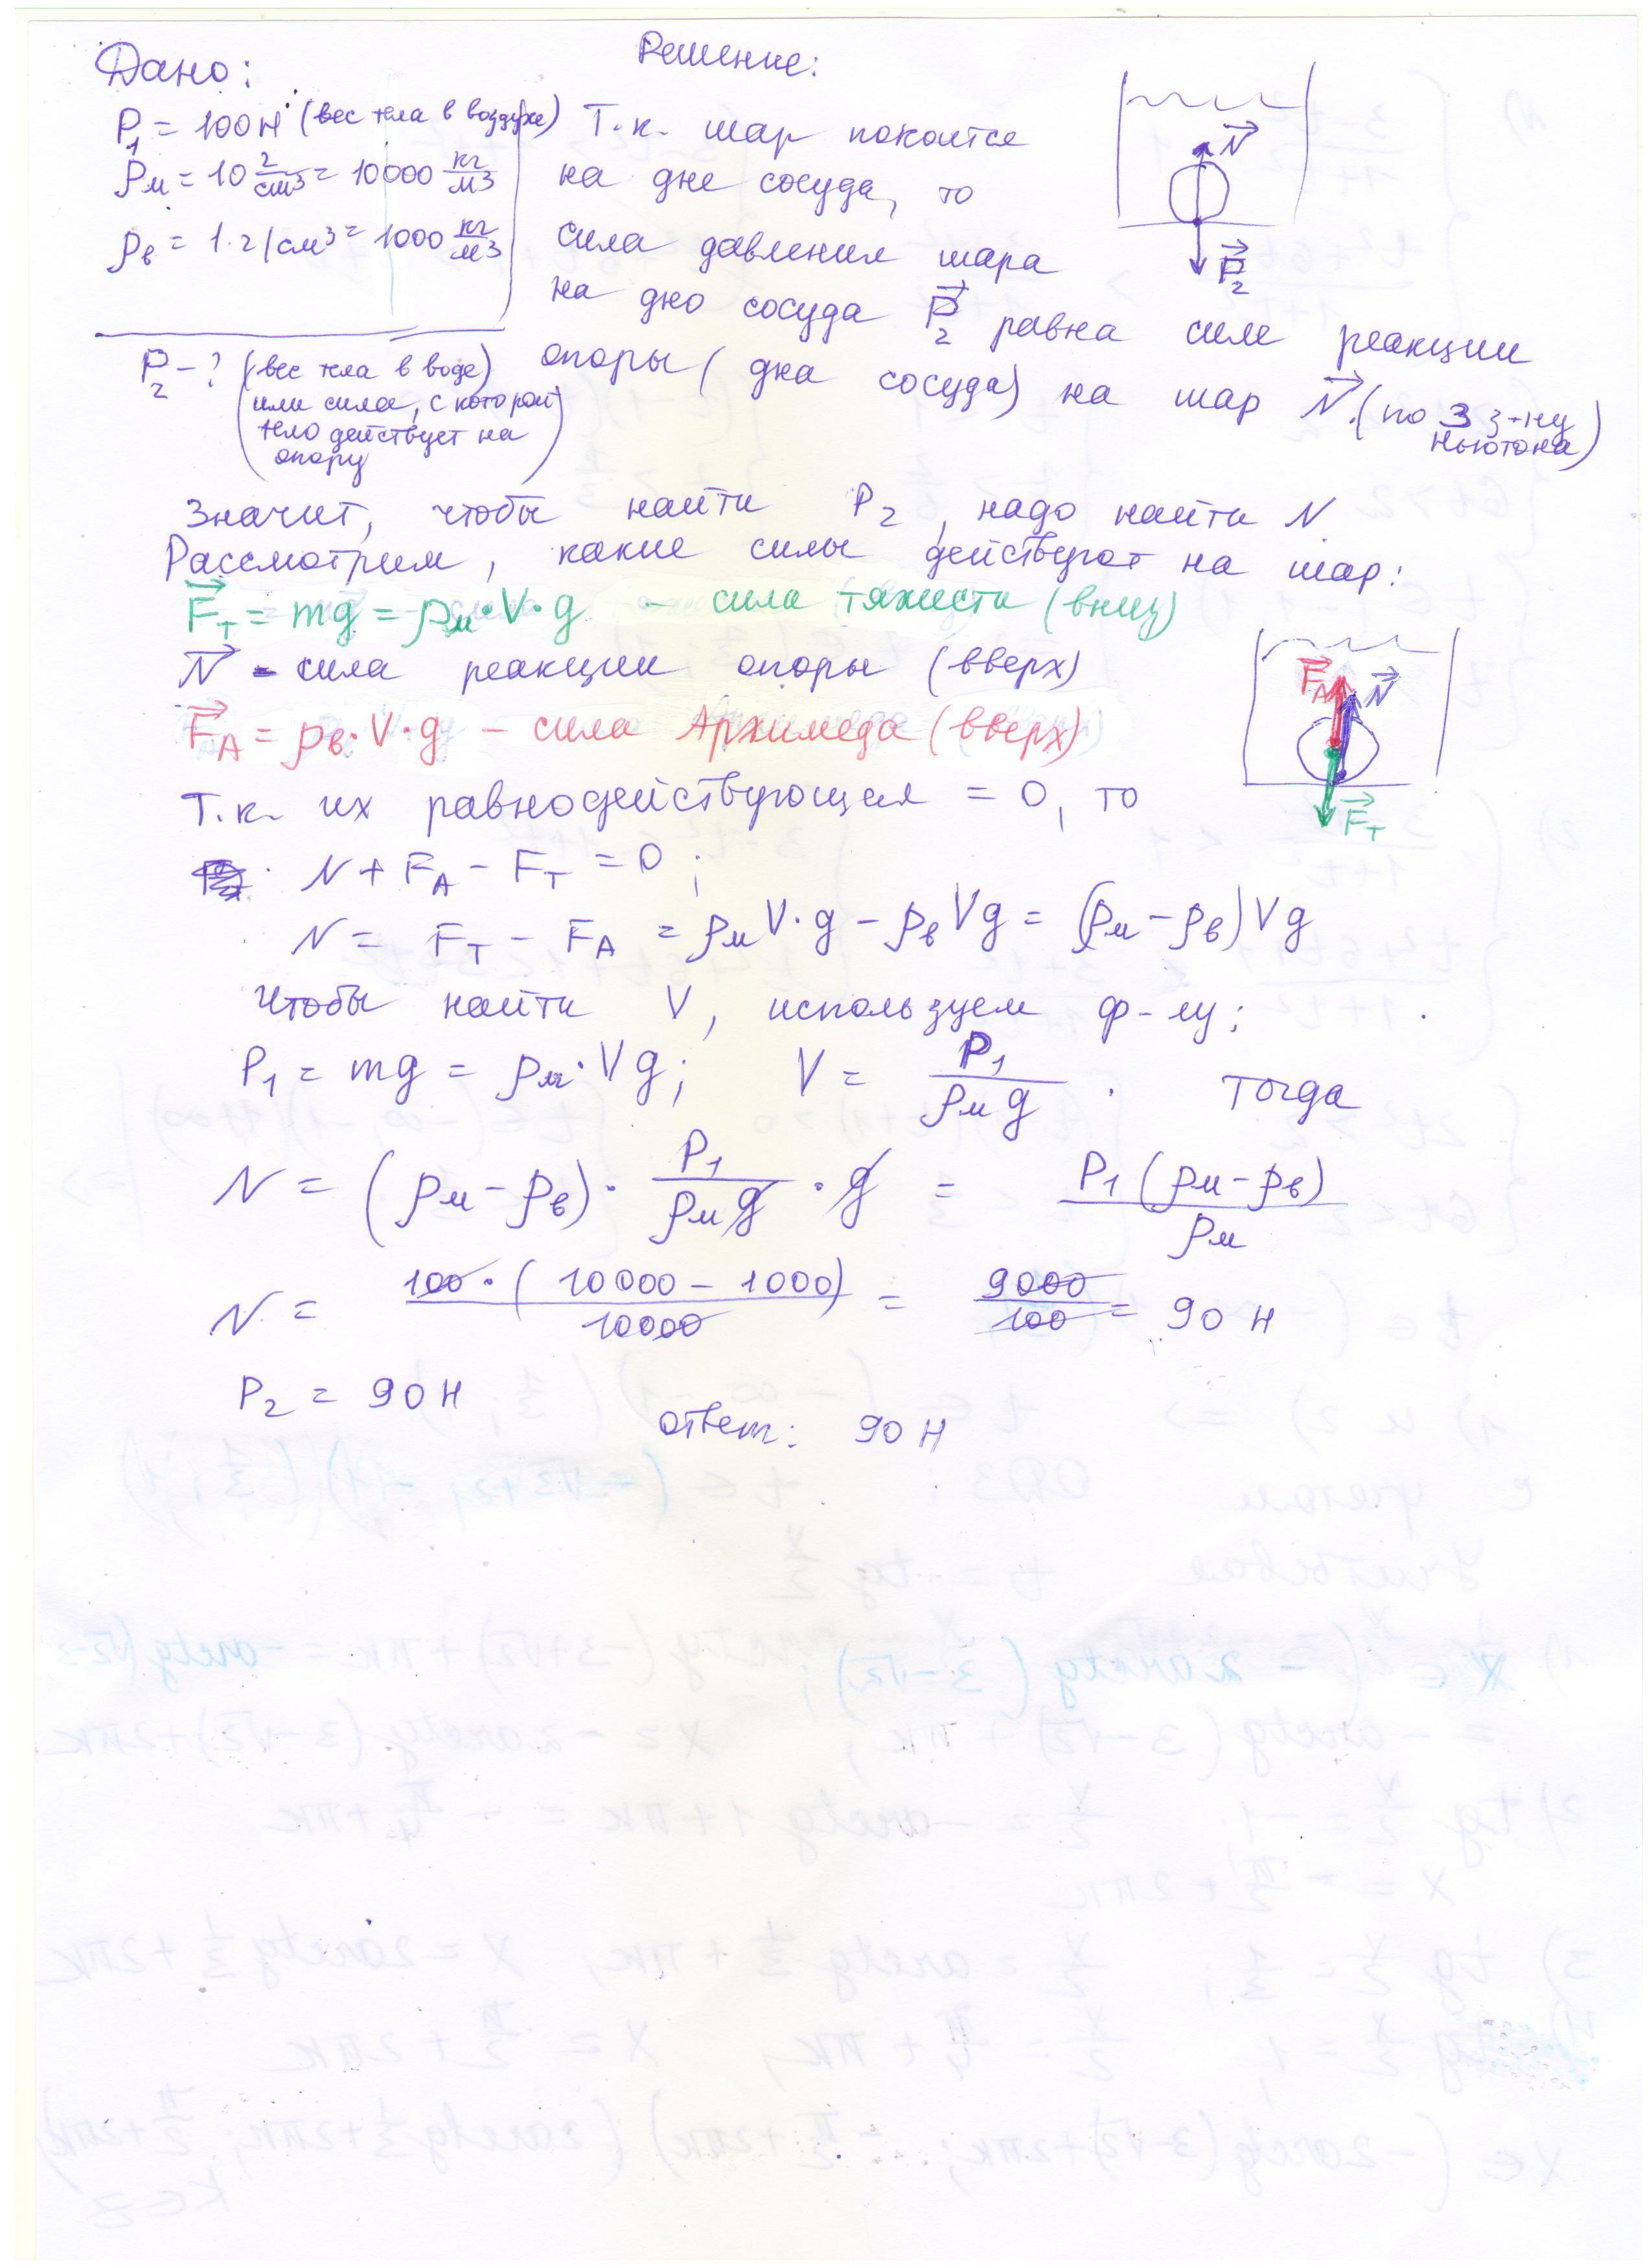 Дано:
Решение:
P₁ = 100Н (вес тела в воздухе)
ρм = 10 г/см³ = 10000 кг/м³
ρв = 1 г/см³ = 1000 кг/м³
P₂ - ? (вес тела в воде)
(или сила, с которой
тело действует на
опору)
Т.к. шар покоится
на дне сосуда, то
сила давления шара
на дно сосуда P₂ равна силе реакции
опоры (дна сосуда) на шар N. (по 3 з-ну
Ньютона)
N
P₂
Значит, чтобы найти P₂, надо найти N
Рассмотрим, какие силы действуют на шар:
Fт = mg = ρм·V·g - сила тяжести (вниз)
N - сила реакции опоры (вверх)
FА = ρв·V·g - сила Архимеда (вверх)
FА N
Fт
Т.к. их равнодействующая = 0, то
N + FА - Fт = 0;
N = Fт - FА = ρм V·g - ρв Vg = (ρм - ρв)Vg
Чтобы найти V, используем ф-лу:
P₁ = mg = ρм·Vg; V = P₁/(ρм g). Тогда
N = (ρм - ρв) · P₁/(ρм g) · g = P₁(ρм - ρв)/ρм
N = 100·(10000 - 1000)/10000 = 9000/100 = 90 Н
P₂ = 90 Н
ответ: 90 Н